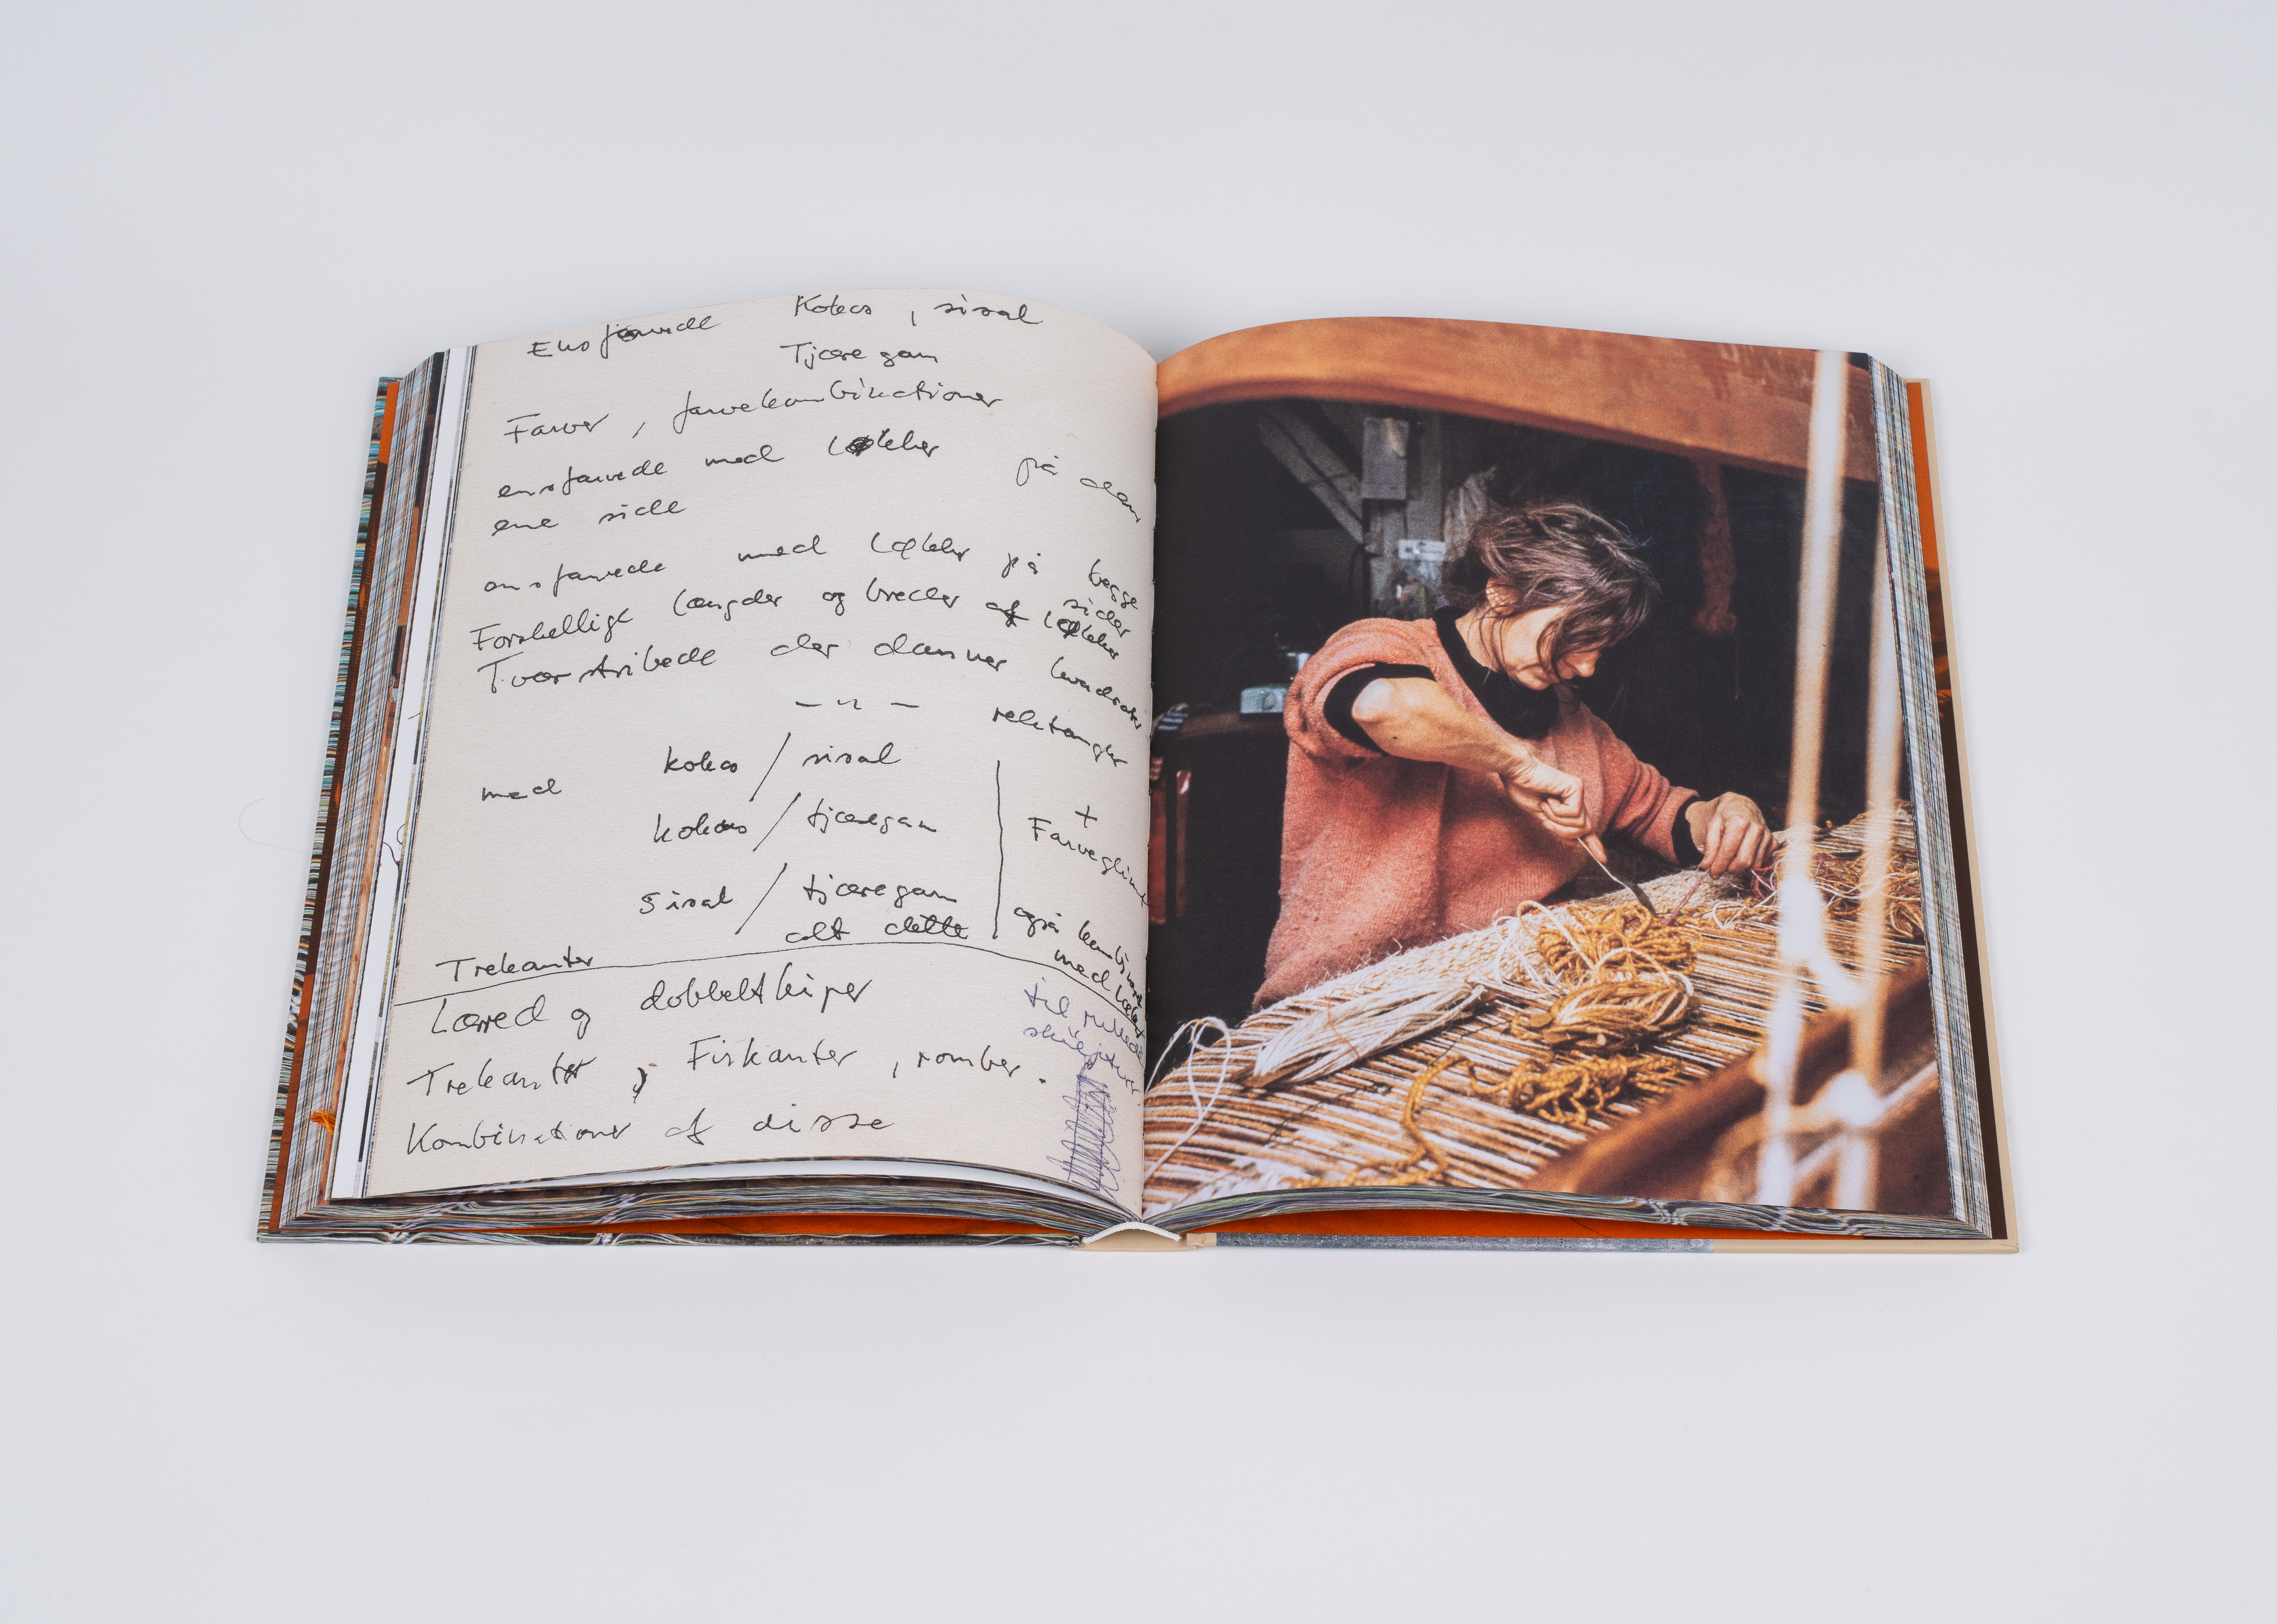 Ensfarvede Kokos, sisal
Tjæregarn
Farver, farvekombinationer
ensfarvede med løkker på den
ene side
ensfarvede med løkker på begge
sider
Forskellige længder og bredder af løkker
Tværstribede der danner kvadrater
— " — rektangler
med kokos / sisal
kokos / tjæregarn
+
Farveglimt
sisal / tjæregarn
alt dette
også kombineret
med
Trekanter
Lærred og dobbeltkiper
til rullede
Trekanter, Firkanter, romber.
Kombinationer af disse